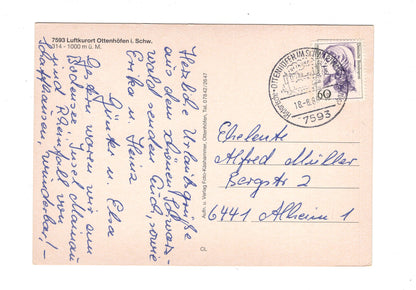 7593 Luftkurort Ottenhöfen i. Schw.
314 - 1000 m ü. M.
Herzliche Urlaubsgrüße
aus dem schönen Schwarz-
wald senden Euch, sowie
Erika u. Heinz
Günter u. Elsa
Gestern waren wir am
Bodensee, Insel Mainau
und Rheinfall von
Schaffhausen, wunderbar!-
Aufn. u. Verlag Foto-Kashammer, Ottenhöfen, Tel. 07842/2647
OTTENHÖFEN IM SCHWARZWALD
18.-8.8
7593
60
Eheleute
Alfred Müller
Bergstr 2
6441 Alheim 1